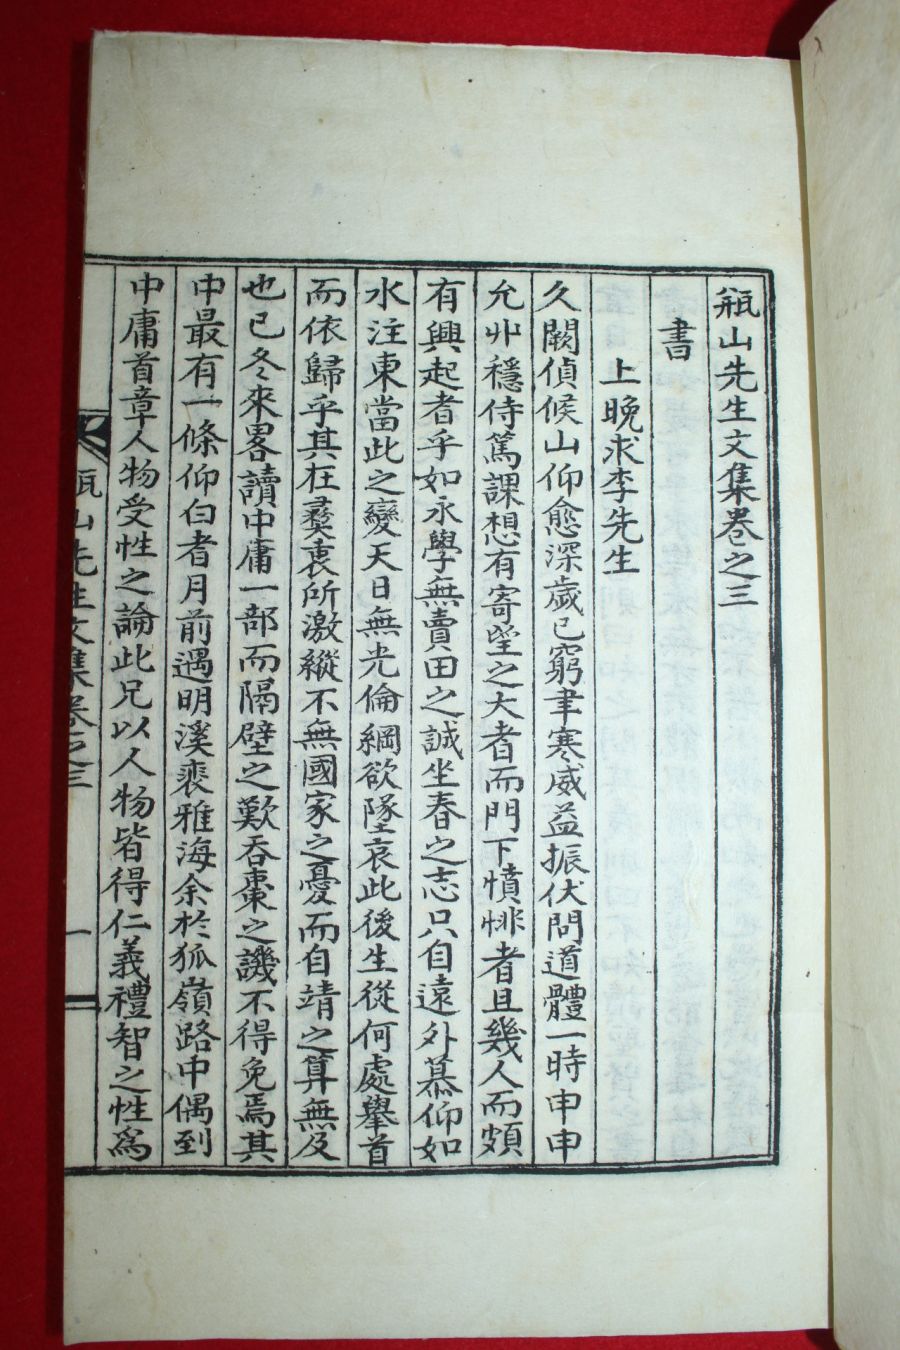 瓶山先生文集卷之三
書
上晚求李先生
久闕偵候山仰愈深歲已窮聿寒威益振伏問道體一時申申
允卝穩侍篤課想有寄望之大者而門下憤悱者且幾人而頗
有興起者乎如永學無賣田之誠坐春之志只自遠外慕仰如
水注東當此之變天日無光倫綱欲墜哀此後生從何處擧首
而依歸乎其在彛衷所激縱不無國家之憂而自靖之算無及
也已冬來畧讀中庸一部而隔壁之歎呑棗之譏不得免焉其
中最有一條仰白者月前遇明溪裵雅海余於狐嶺路中偶到
中庸首章人物受性之論此兄以人物皆得仁義禮智之性爲
瓶山先生文集卷之三
一